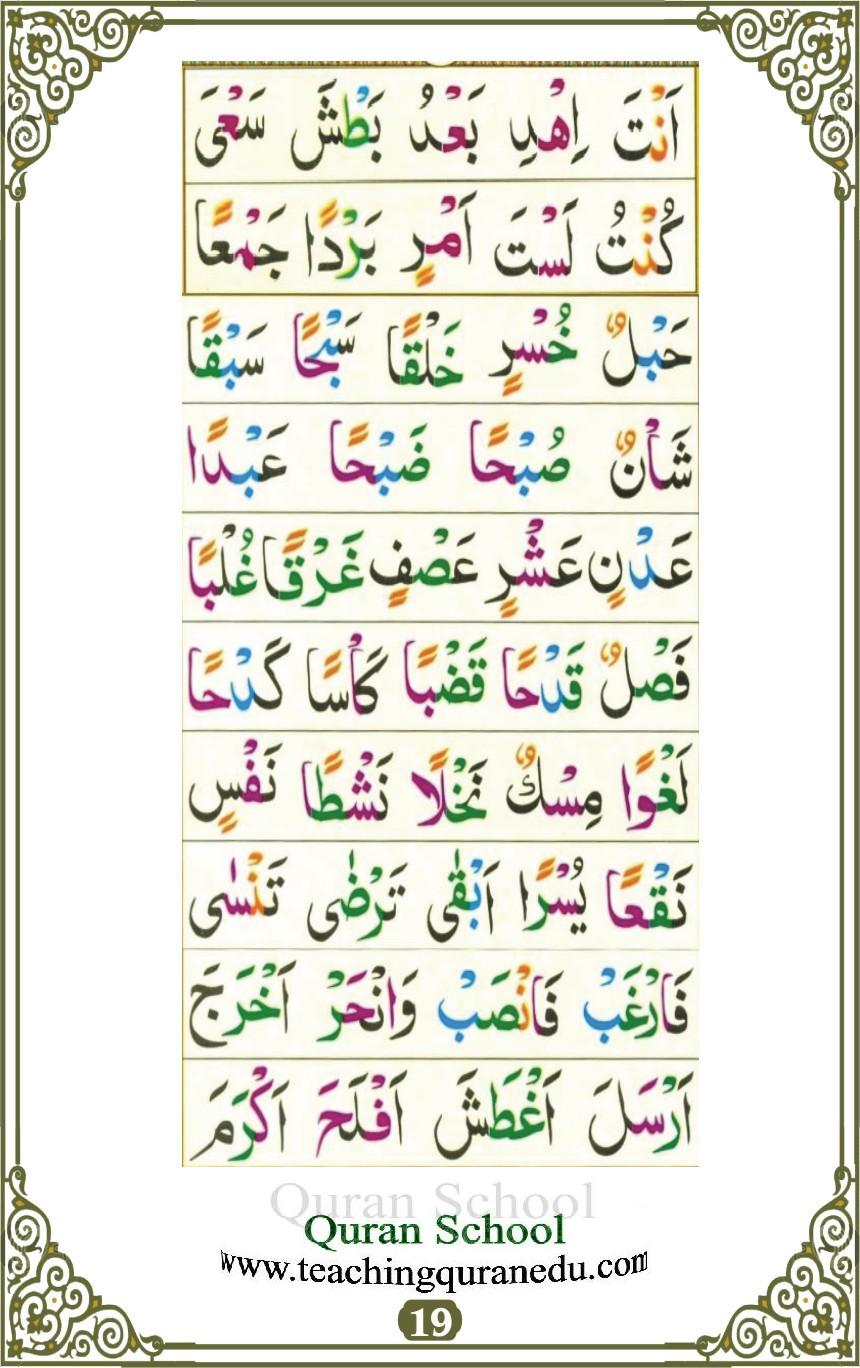 اَنْتَ اِهْدِ بَعْدُ بَطْشَ سَعْىَ
كُنْتُ لَسْتَ اَمْرٍ بَرْدًا جَمْعًا
حَبْلٌ خُسْرٍ خَلْقًا سَبْحًا سَبْقًا
شَاْنٌ صُبْحًا ضَبْحًا عَبْدًا
عَدْنٍ عَشْرٍ عَصْفٍ غَرْقًا غُلْبًا
فَصْلٌ قَدْحًا قَضْبًا كَاْسًا كَدْحًا
لَغْوًا مِسْكٌ نَخْلًا نَشْطًا نَفْسٍ
نَقْعًا يُسْرًا اَبْقٰى تَرْضٰى تَنْسٰى
فَارْغَبْ فَانْصَبْ وَانْحَرْ اَخْرَجَ
اَرْسَلَ اَغْطَشَ اَفْلَحَ اَكْرَمَ
Quran School
Quran School
www.teachingquranedu.com
19